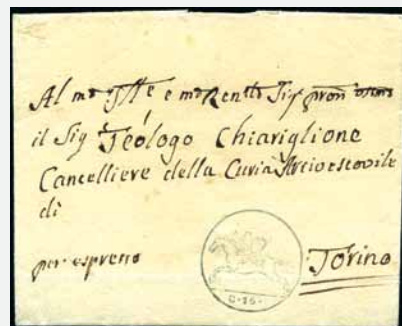 Al m.to Ill.e e m.to Rendo Sig.r pron osmo
il Sig Teólogo Chiariglione
Cancelliere della Curia Arcivescovile
di
per espresso
Torino
C. 16.